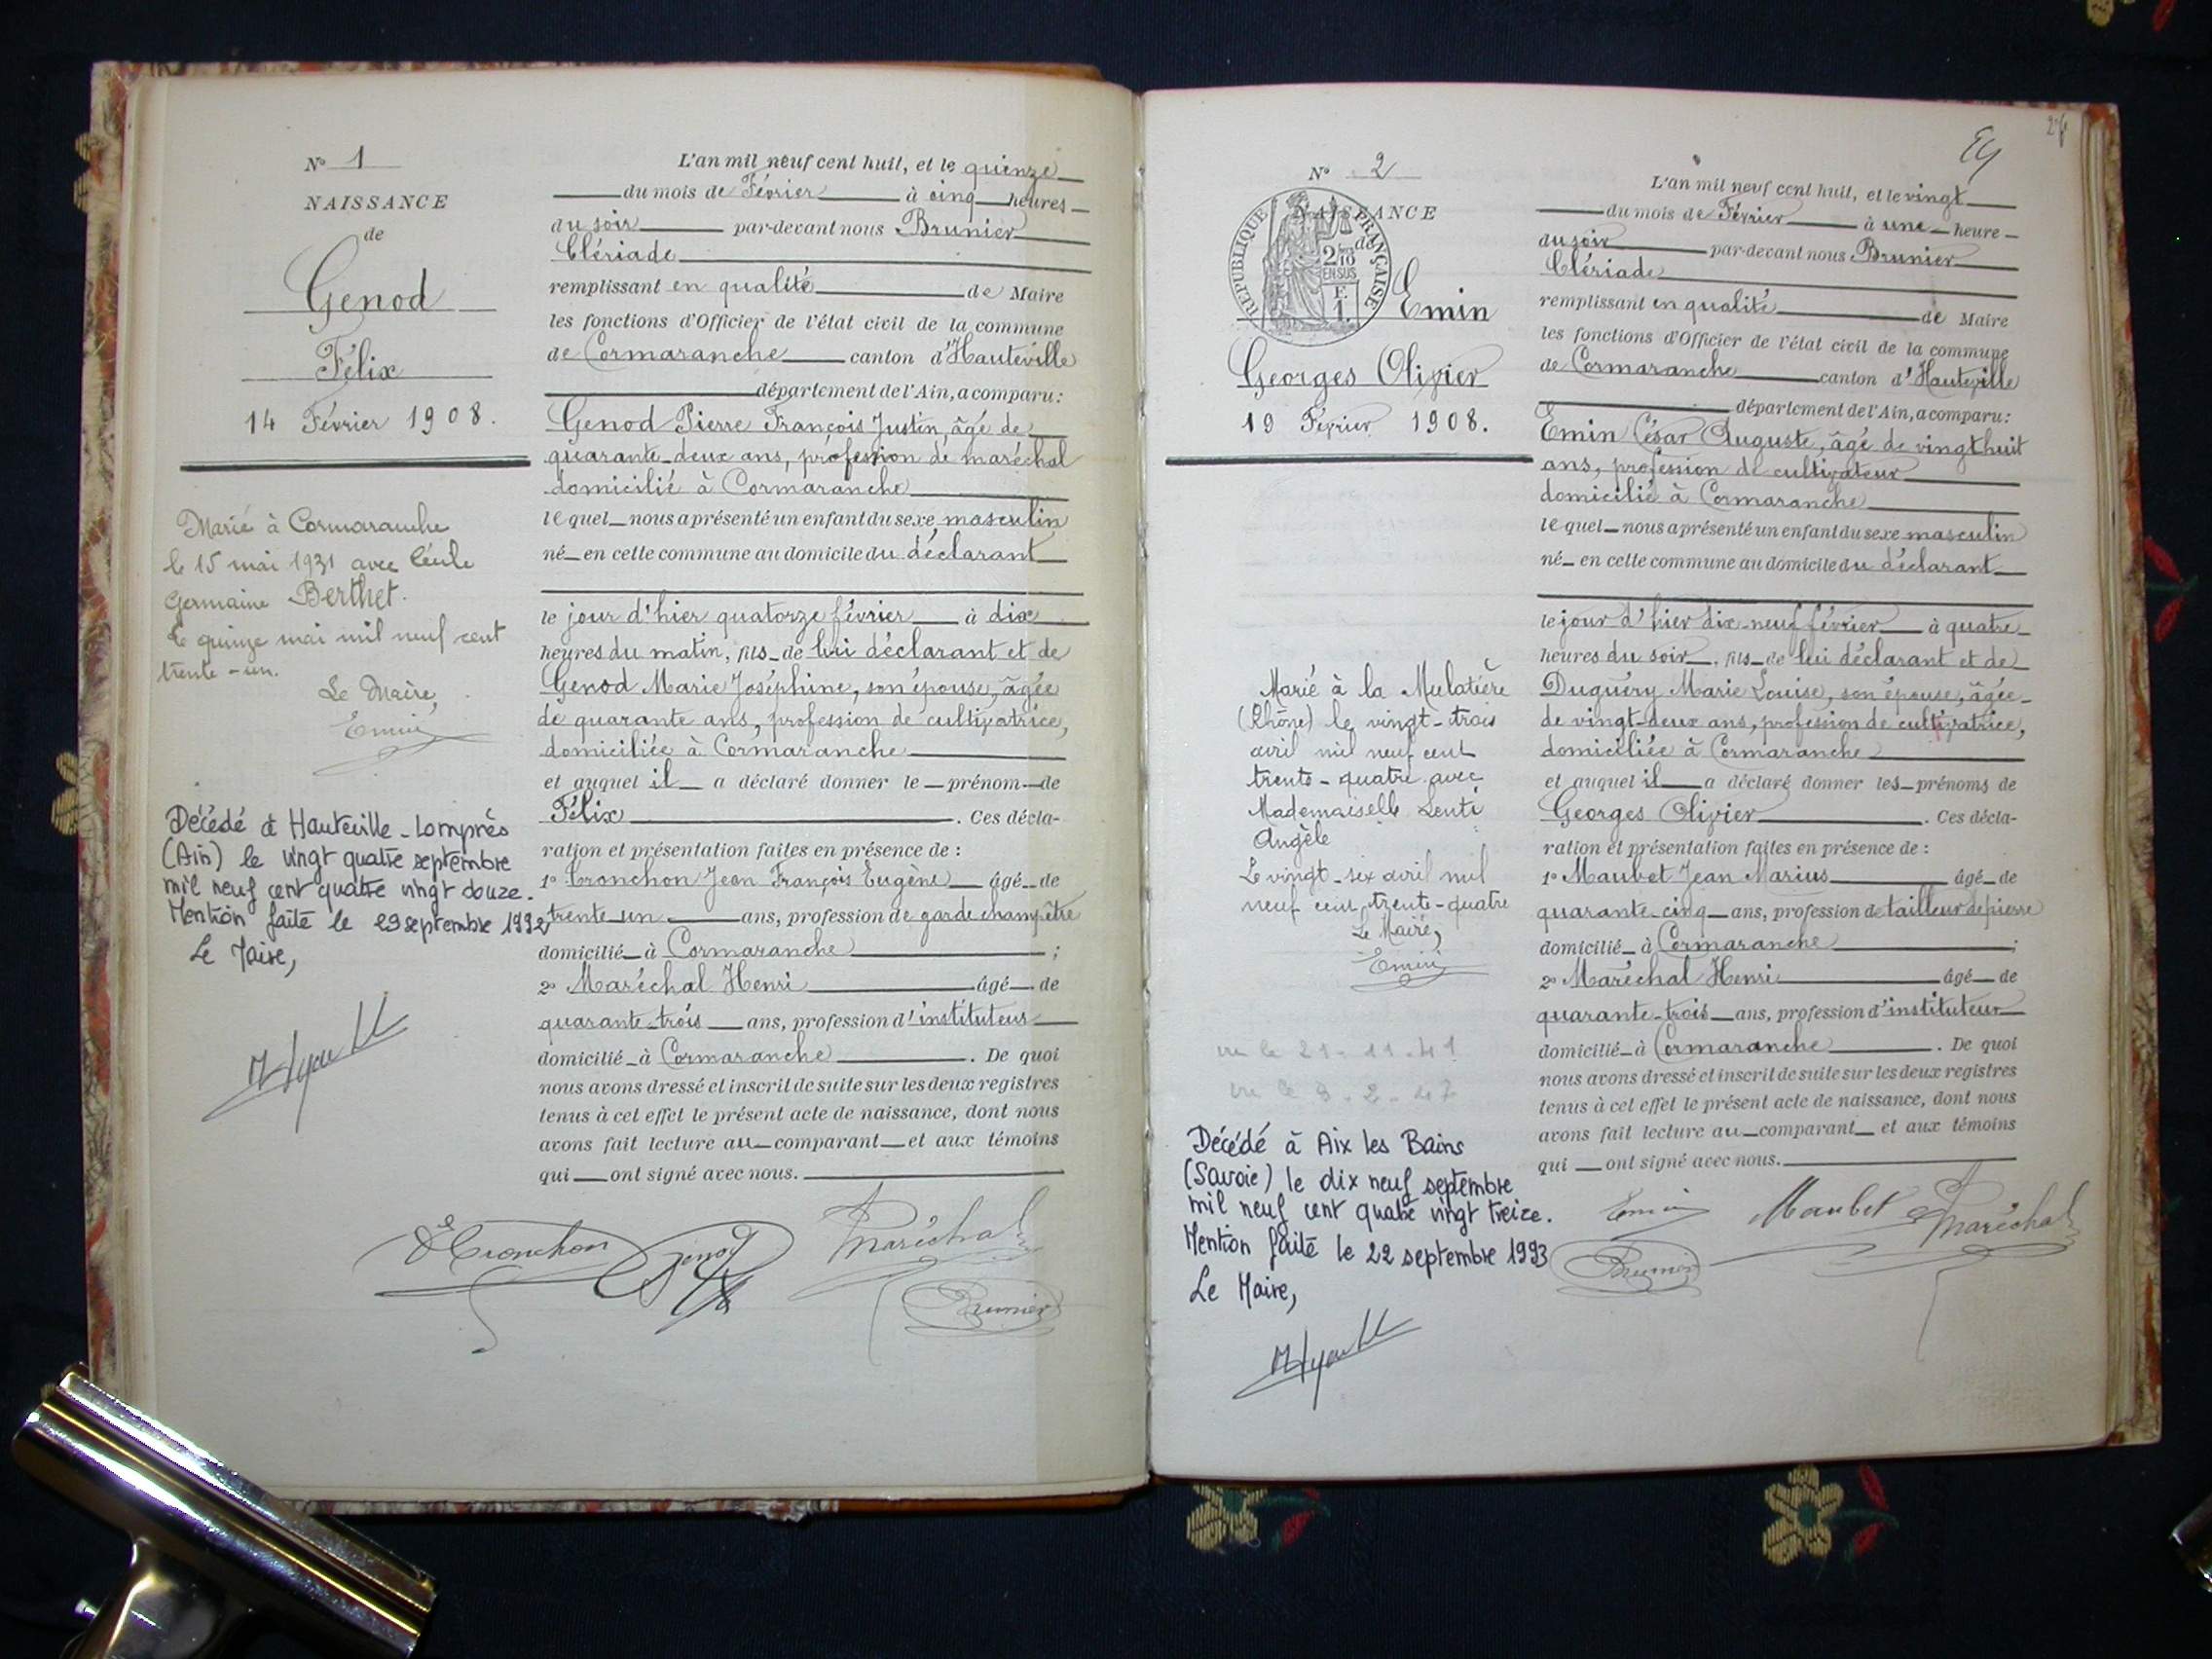 N° 1
NAISSANCE
de
Genod
Félix
14 Février 1908.
Marié à Cormaranche
le 15 mai 1931 avec Cécile
Germaine Berthet.
le quinze mai mil neuf cent
trente-un.
Le Maire,
Emin
Décédé à Hauteville-Lompnès
(Ain) le vingt quatre septembre
mil neuf cent quatre vingt douze.
Mention faite le 29 septembre 1992
Le Maire,
L'an mil neuf cent huit, et le quinze
du mois de Février à cinq heures
du soir par-devant nous Brunier
Clériade
remplissant en qualité de Maire
les fonctions d'Officier de l'état civil de la commune
de Cormaranche canton d'Hauteville
département de l'Ain, a comparu:
Genod Pierre François Justin, âgé de
quarante-deux ans, profession de maréchal
domicilié à Cormaranche
lequel nous a présenté un enfant du sexe masculin
né en cette commune au domicile du déclarant
le jour d'hier quatorze février à dix
heures du matin, fils de lui déclarant et de
Genod Marie Joséphine, son épouse, âgée
de quarante ans, profession de cultivatrice,
domiciliée à Cormaranche
et auquel il a déclaré donner le prénom de
Félix. Ces décla-
ration et présentation faites en présence de :
1° Cronchon Jean François Eugène âgé de
trente un ans, profession de garde champêtre
domicilié à Cormaranche ;
2° Maréchal Henri âgé de
quarante-trois ans, profession d'instituteur
domicilié à Cormaranche. De quoi
nous avons dressé et inscrit de suite sur les deux registres
tenus à cet effet le présent acte de naissance, dont nous
avons fait lecture au comparant et aux témoins
qui ont signé avec nous.
Cronchon Genod Maréchal
Brunier
24
N° 2
NAISSANCE
de
REPUBLIQUE FRANÇAISE
2/10
EN SUS
F.
1.
Emin
Georges Olivier
19 Février 1908.
Marié à la Mulatière
(Rhône) le vingt-trois
avril mil neuf cent
trente-quatre avec
Mademoiselle Lenti
Angèle
Le vingt-six avril mil
neuf cent trente-quatre
Le Maire,
Emin
vu le 21-11-41
vu le 8-2-47
Décédé à Aix les Bains
(Savoie) le dix neuf septembre
mil neuf cent quatre vingt treize.
Mention faite le 22 septembre 1993
Le Maire,
L'an mil neuf cent huit, et le vingt
du mois de Février à une heure
du soir par-devant nous Brunier
Clériade
remplissant en qualité de Maire
les fonctions d'Officier de l'état civil de la commune
de Cormaranche canton d'Hauteville
département de l'Ain, a comparu:
Emin César Auguste, âgé de vingt huit
ans, profession de cultivateur
domicilié à Cormaranche
lequel nous a présenté un enfant du sexe masculin
né en cette commune au domicile du déclarant
le jour d'hier dix-neuf février à quatre
heures du soir, fils de lui déclarant et de
Duguéry Marie Louise, son épouse, âgée
de vingt-deux ans, profession de cultivatrice,
domiciliée à Cormaranche
et auquel il a déclaré donner les prénoms de
Georges Olivier. Ces décla-
ration et présentation faites en présence de :
1° Maubet Jean Marius âgé de
quarante-cinq ans, profession de tailleur de pierre
domicilié à Cormaranche ;
2° Maréchal Henri âgé de
quarante-trois ans, profession d'instituteur
domicilié à Cormaranche. De quoi
nous avons dressé et inscrit de suite sur les deux registres
tenus à cet effet le présent acte de naissance, dont nous
avons fait lecture au comparant et aux témoins
qui ont signé avec nous.
Emin Maubet Maréchal
Brunier